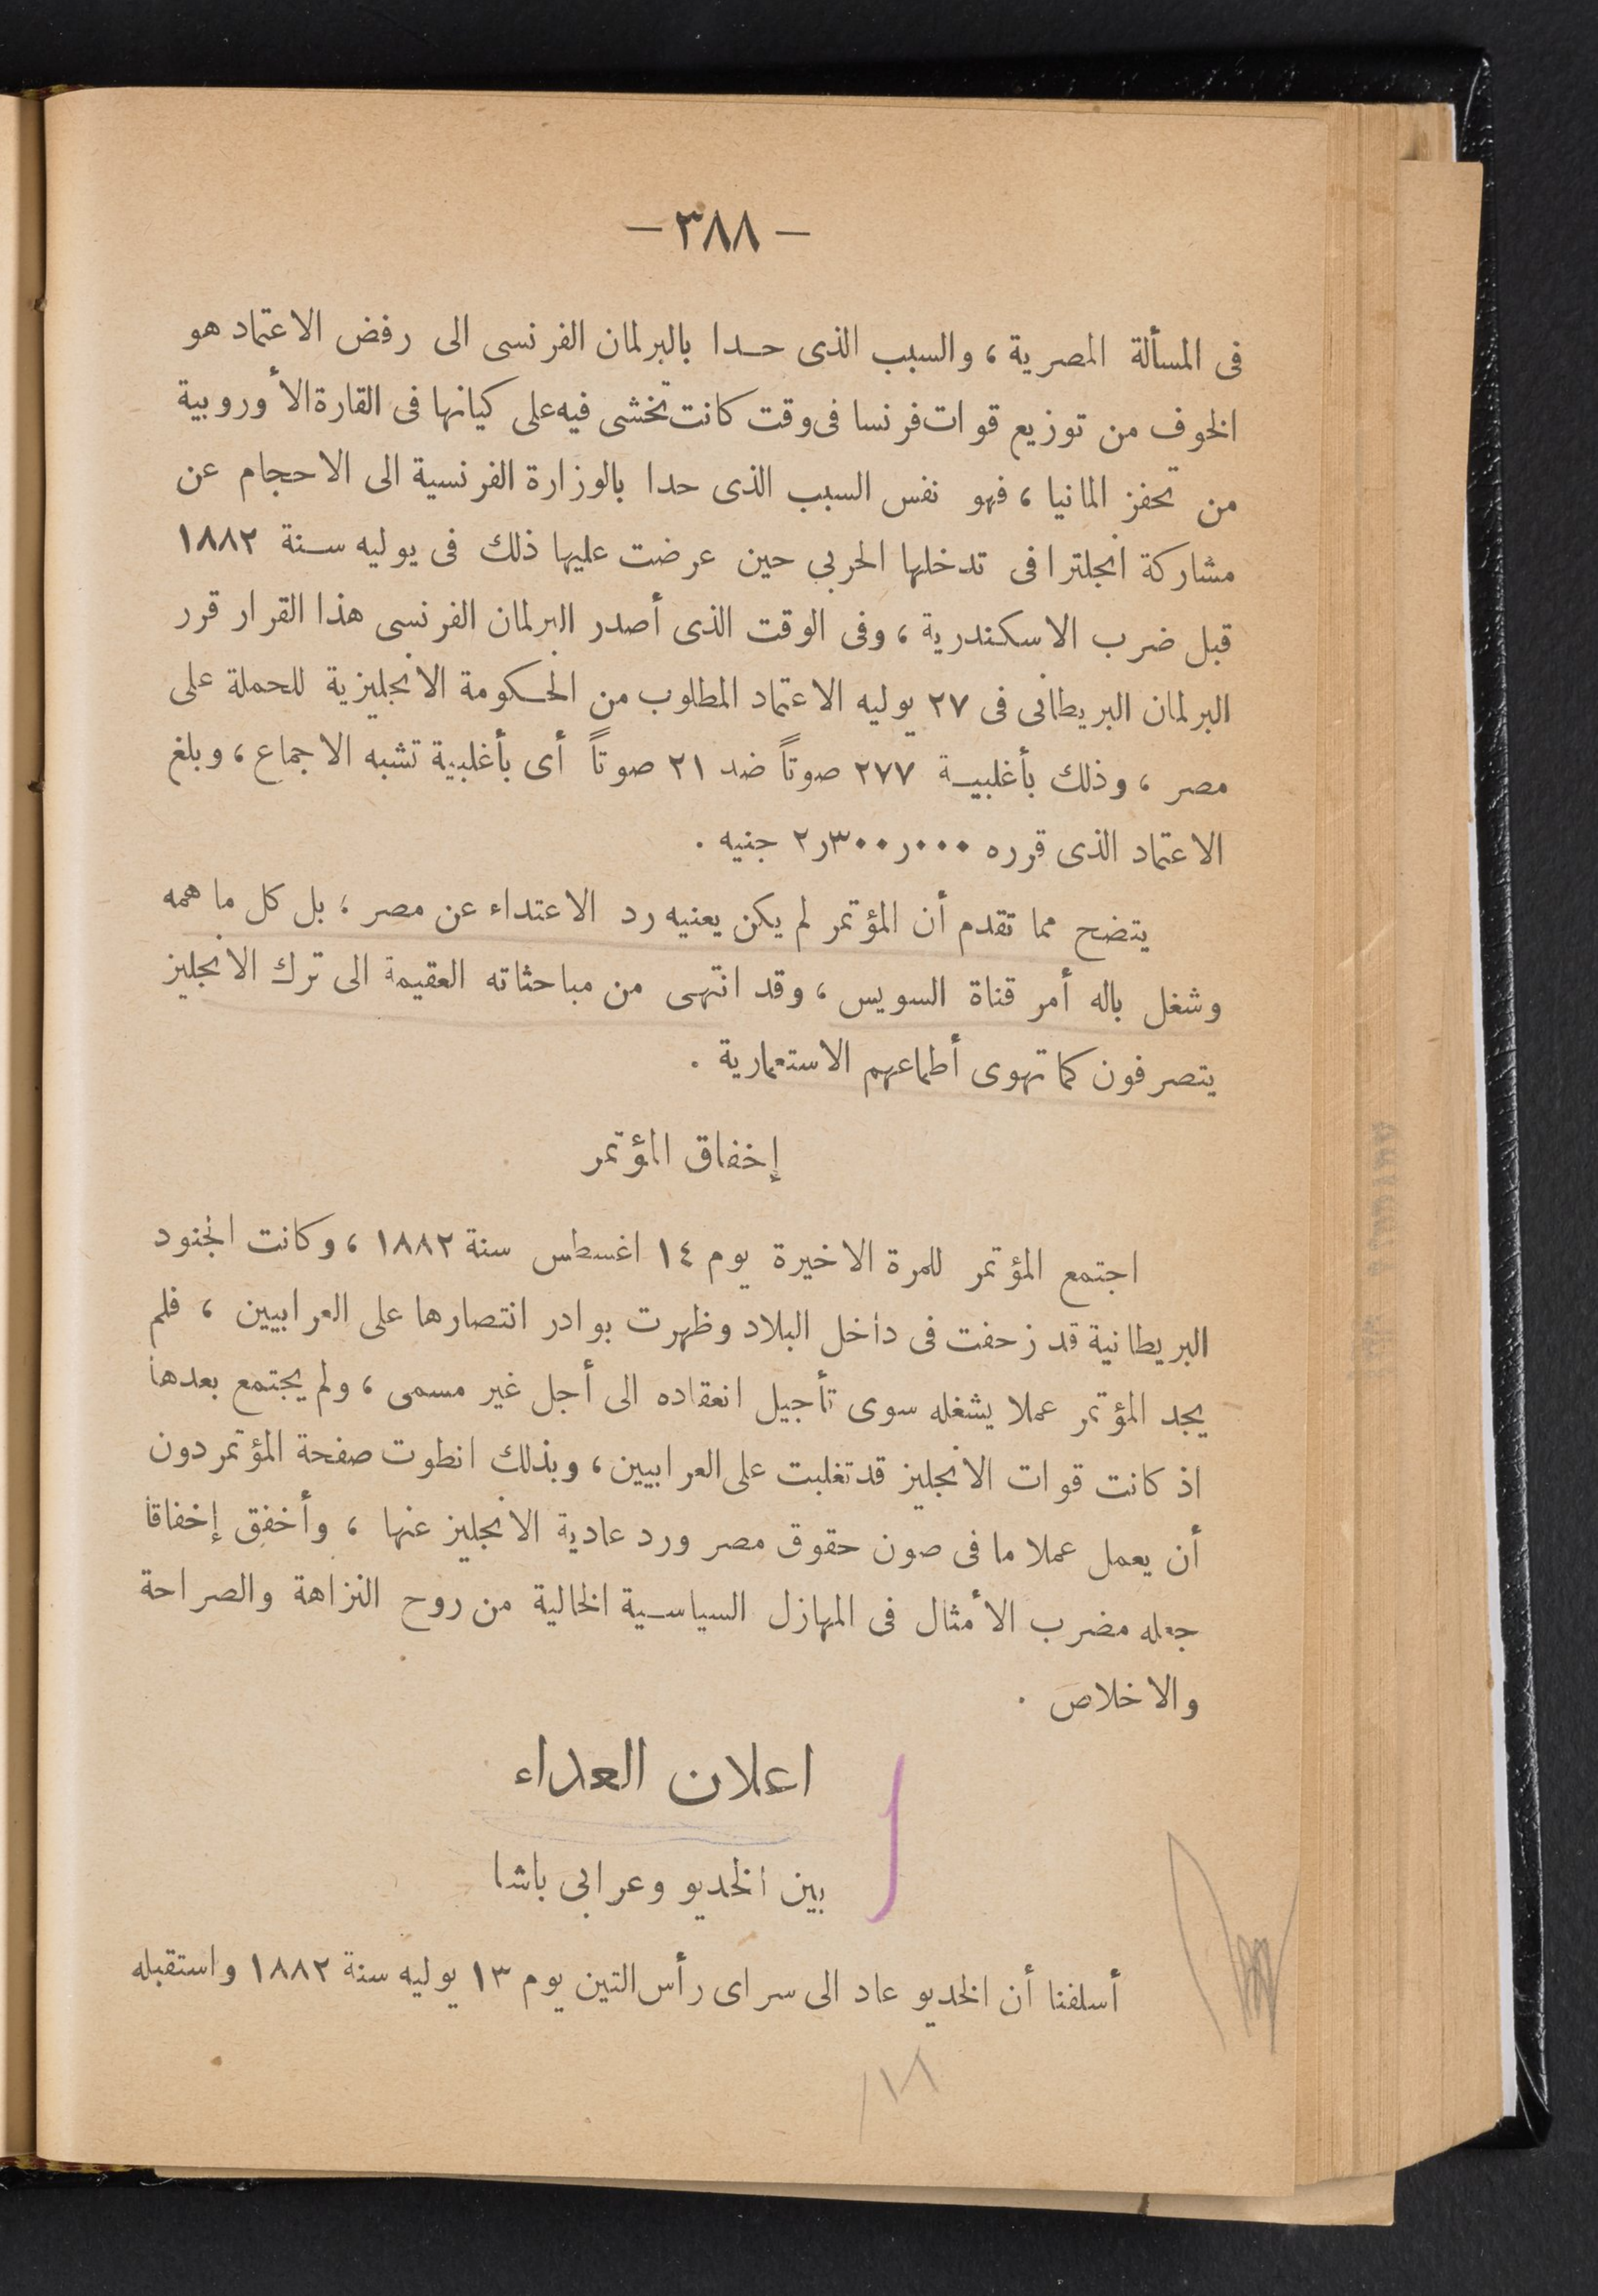 — ٣٨٨ —
فى المسألة المصرية ، والسبب الذى حدا بالبرلمان الفرنسى الى رفض الاعتماد هو
الخوف من توزيع قوات فرنسا فى وقت كانت تخشى فيه على كيانها فى القارة الأوروبية
من تحفز المانيا ، فهو نفس السبب الذى حدا بالوزارة الفرنسية الى الاحجام عن
مشاركة انجلترا فى تدخلها الحربي حين عرضت عليها ذلك فى يوليه سنة ١٨٨٢
قبل ضرب الاسكندرية ، وفى الوقت الذى أصدر البرلمان الفرنسى هذا القرار قرر
البرلمان البريطانى فى ٢٧ يوليه الاعتماد المطلوب من الحكومة الانجليزية للحملة على
مصر ، وذلك بأغلبية ٢٧٧ صوتاً ضد ٢١ صوتاً أى بأغلبية تشبه الاجماع ، وبلغ
الاعتماد الذى قرره ٢ر٣٠٠ر٠٠٠ جنيه .
يتضح مما تقدم أن المؤتمر لم يكن يعنيه رد الاعتداء عن مصر ، بل كل ما همه
وشغل باله أمر قناة السويس ، وقد انتهى من مباحثاته العقيمة الى ترك الانجليز
يتصرفون كما تهوى أطماعهم الاستعمارية .
إخفاق المؤتمر
اجتمع المؤتمر للمرة الاخيرة يوم ١٤ اغسطس سنة ١٨٨٢ ، وكانت الجنود
البريطانية قد زحفت فى داخل البلاد وظهرت بوادر انتصارها على العرابيين ، فلم
يجد المؤتمر عملا يشغله سوى تأجيل انعقاده الى أجل غير مسمى ، ولم يجتمع بعدها
اذ كانت قوات الانجليز قد تغلبت على العرابيين ، وبذلك انطوت صفحة المؤتمر دون
أن يعمل عملا ما فى صون حقوق مصر ورد عادية الانجليز عنها ، وأخفق إخفاقا
جعله مضرب الأمثال فى المهازل السياسية الخالية من روح النزاهة والصراحة
والاخلاص .
اعلان العداء
بين الخديو وعرابى باشا
أسلفنا أن الخديو عاد الى سراى رأس التين يوم ١٣ يوليه سنة ١٨٨٢ واستقبله